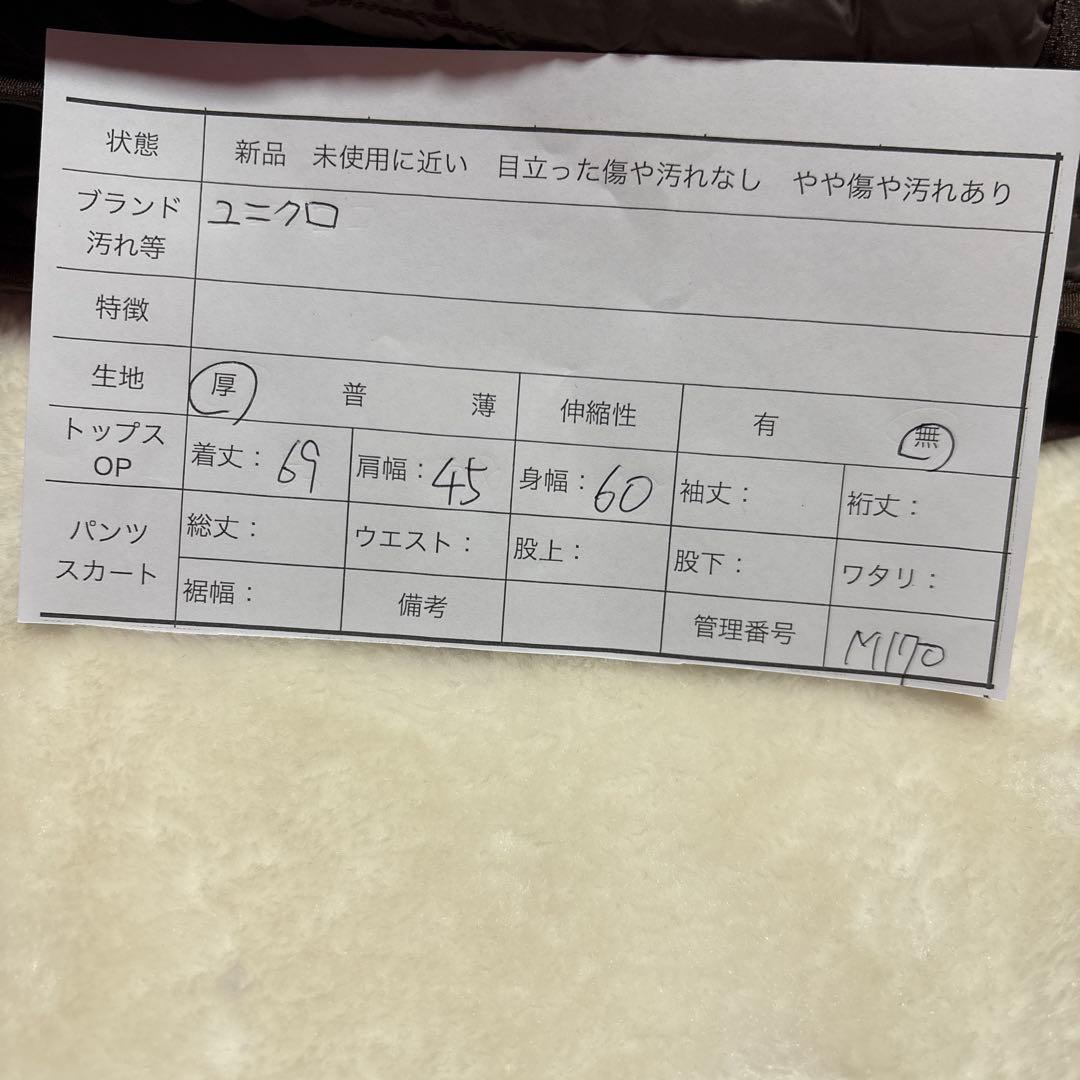 状態 新品 未使用に近い 目立った傷や汚れなし やや傷や汚れあり
ブランド 汚れ等 ユニクロ
特徴
生地 厚 普 薄 伸縮性 有 無
トップス OP 着丈： 69 肩幅： 45 身幅： 60 袖丈： 裄丈：
パンツ スカート 総丈： ウエスト： 股上： 股下： ワタリ：
裾幅： 備考 管理番号 M170